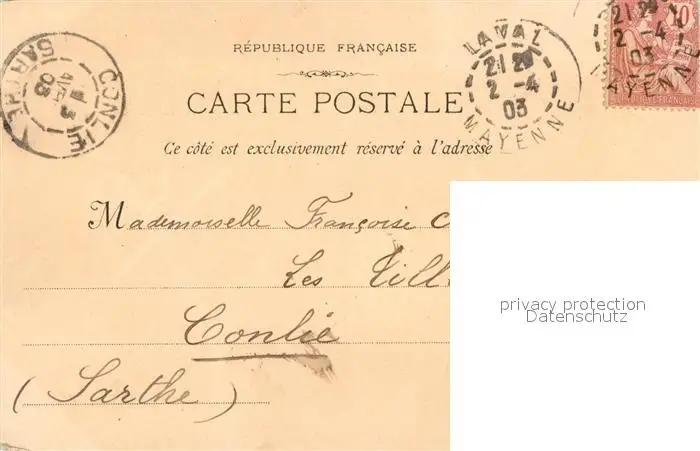 RÉPUBLIQUE FRANÇAISE
CARTE POSTALE
Ce côté est exclusivement réservé à l'adresse
LAVAL
21 2-4
03
MAYENNE
10
21
2-4
03
AYENNE
CONLIE
3
AVRIL
03
SARTHE
Mademoiselle Françoise
Les Till
Conlie
(Sarthe)
privacy protection
Datenschutz